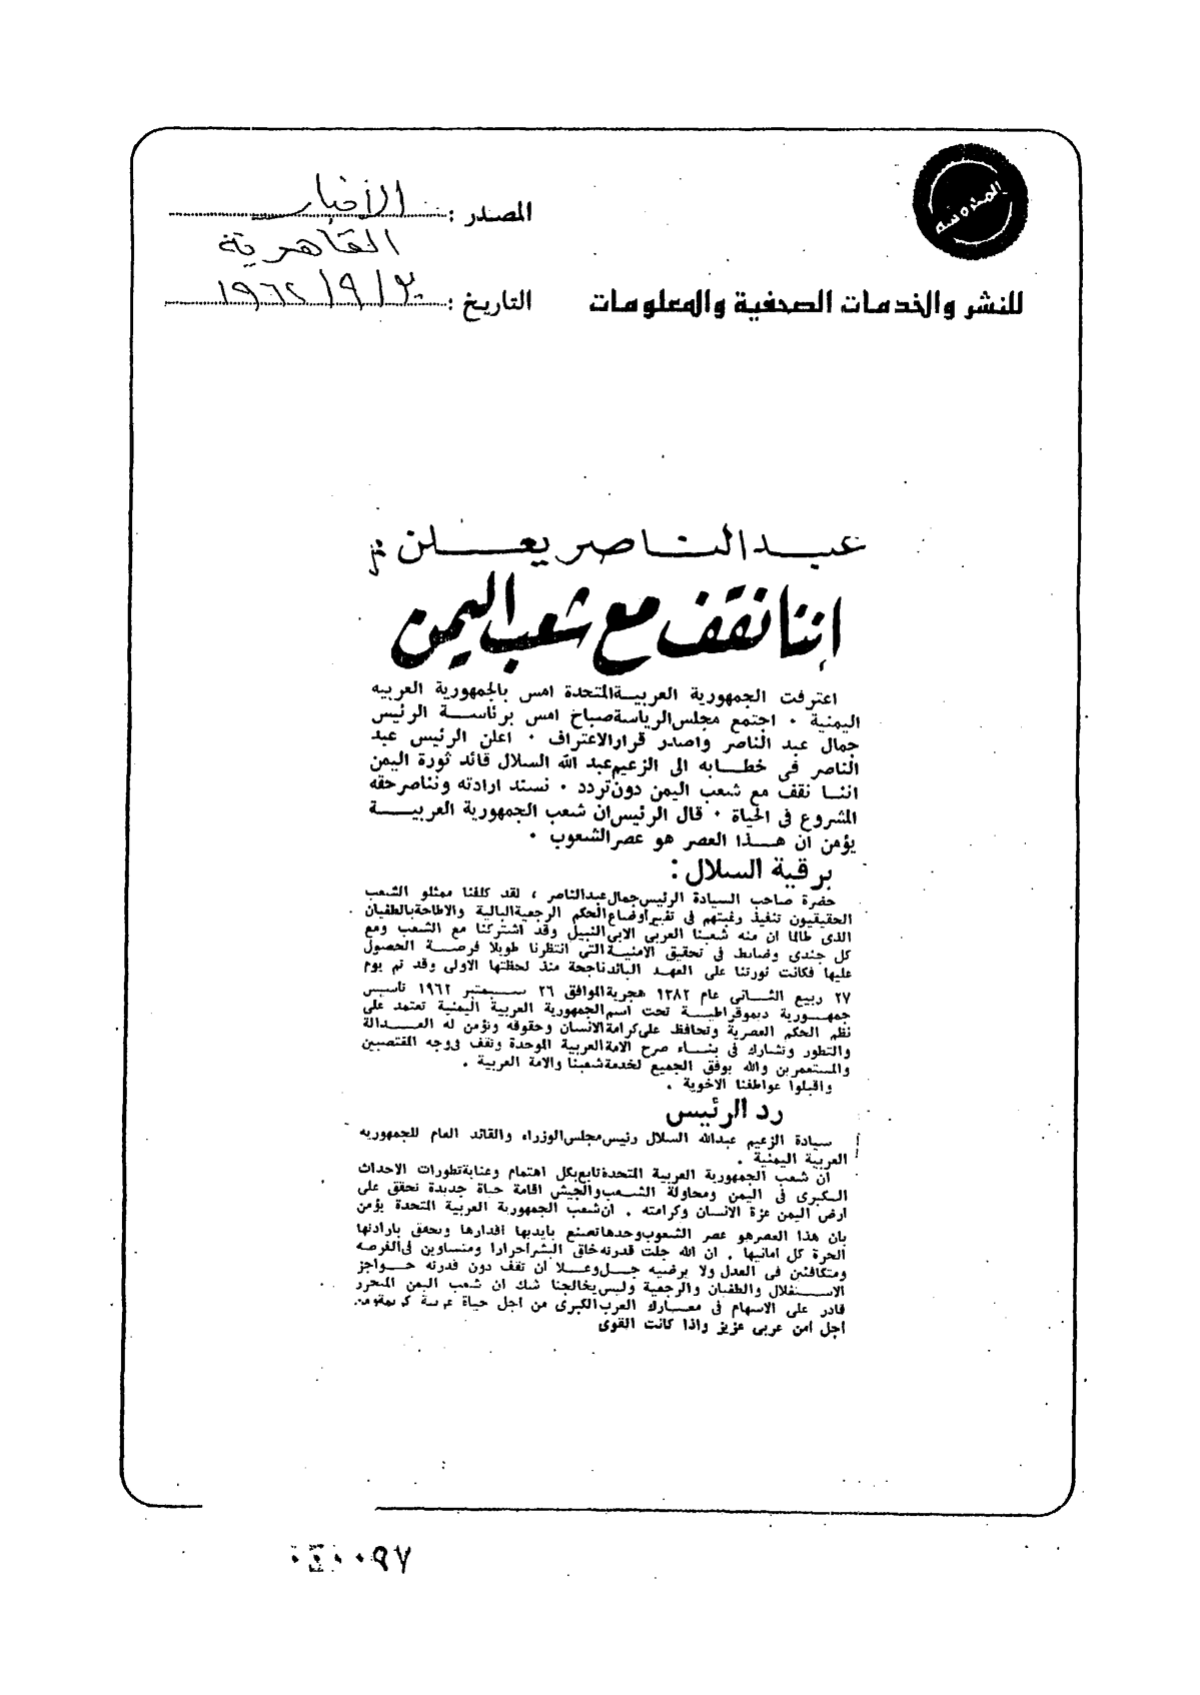 المحروسة
للنشر والخدمات الصحفية والمعلومات
المصدر : الأخبار
القاهرية
التاريخ : ٣٠/٩/١٩٦٢
عبد الناصر يعلن :
اننا نقف مع شعب اليمن
اعترفت الجمهورية العربية المتحدة امس بالجمهورية العربيه
اليمنية . اجتمع مجلس الرياسة صباح امس برئاسة الرئيس
جمال عبد الناصر واصدر قرار الاعتراف . اعلن الرئيس عبد
الناصر فى خطابه الى الزعيم عبد الله السلال قائد ثورة اليمن
اننا نقف مع شعب اليمن دون تردد . نسند ارادته ونناصر حقه
المشروع فى الحياة . قال الرئيس ان شعب الجمهورية العربية
يؤمن ان هذا العصر هو عصر الشعوب .
برقية السلال :
حضرة صاحب السيادة الرئيس جمال عبد الناصر ، لقد كلفنا ممثلو الشعب
الحقيقيون تنفيذ رغبتهم فى تغيير اوضاع الحكم الرجعية البالية والاطاحة بالطغيان
الذى طالما ان منه شعبنا العربى الابى النبيل وقد اشتركنا مع الشعب ومع
كل جندى وضابط فى تحقيق الامنية التى انتظرنا طويلا فرصة الحصول
عليها فكانت ثورتنا على العهد البائد ناجحة منذ لحظتها الاولى وقد تم يوم
٢٧ ربيع الثانى عام ١٣٨٢ هجرية الموافق ٢٦ سبتمبر ١٩٦٢ تاسيس
جمهورية ديموقراطية تحت اسم الجمهورية العربية اليمنية تعتمد على
نظم الحكم العصرية وتحافظ على كرامة الانسان وحقوقه ونؤمن له العدالة
والتطور وتشارك فى بناء صرح الامة العربية الموحدة وتقف فى وجه المغتصبين
والمستعمرين والله يوفق الجميع لخدمة شعبنا والامة العربية .
واقبلوا عواطفنا الاخوية .
رد الرئيس
سيادة الزعيم عبدالله السلال رئيس مجلس الوزراء والقائد العام للجمهوريه
العربية اليمنية .
ان شعب الجمهورية العربية المتحدة تابع بكل اهتمام وعناية تطورات الاحداث
الكبرى فى اليمن ومحاولة الشعب والجيش اقامة حياة جديدة تحقق على
ارض اليمن عزة الانسان وكرامته . ان شعب الجمهورية العربية المتحدة يؤمن
بان هذا العصر هو عصر الشعوب وحدها تصنع بايديها اقدارها وتحقق بارادتها
الحرة كل امانيها . ان الله جلت قدرته خلق البشر احرارا ومتساوين فى الفرصه
ومتكافئين فى العدل ولا يرضيه جل وعلا ان تقف دون قدرته حواجز
الاستغلال والطغيان والرجعية وليس يخالجنا شك ان شعب اليمن المتحرر
قادر على الاسهام فى معارك العرب الكبرى من اجل حياة عربية كريمة ومن
اجل امن عربى عزيز واذا كانت القوى